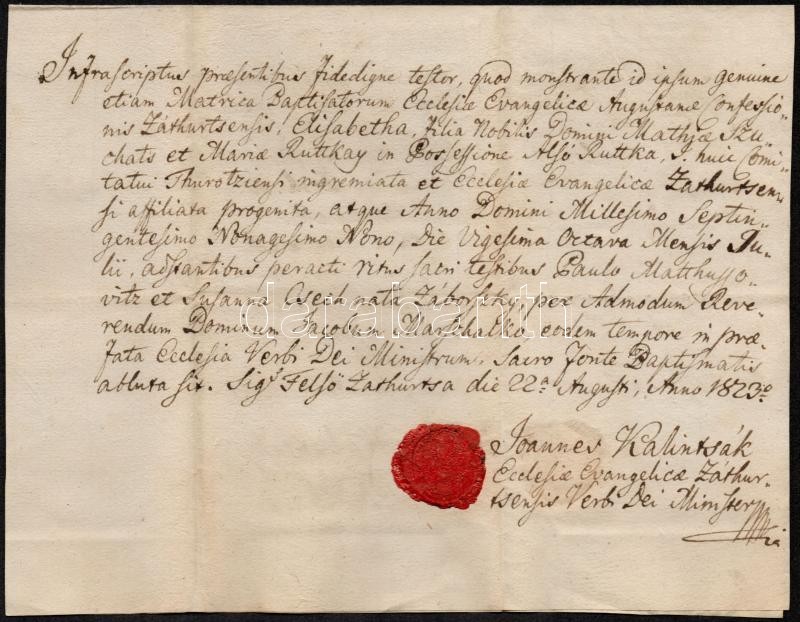 Infrascriptus præsentibus fidedigne testor, quod monstrante id ipsum genuine
etiam Matrica Baptisatorum Ecclesiæ Evangelicæ Augustanæ Confessio-
nis Záthurtsensis, Elisabetha, filia Nobilis Domini Mathiæ Szu-
chats et Mariæ Ruttkay in Possessione Alsó Ruttka, I. huic Comi-
tatui Thurotziensi ingremiata et Ecclesiæ Evangelicæ Zathurtsen-
si affiliata progenita, atque Anno Domini Millesimo Septin-
gentesimo Nonagesimo Nono, Die Vigesima Octava Mensis Ju-
lii, adstantibus peracti ritus sacri testibus Paulo Matthusso-
vitz et Susanna Csech nata Záborszky, per Admodum Reve-
rendum Dominum Jacobum Marschalko eodem tempore in præ-
fata Ecclesia Verbi Dei Ministrum, Sacro fonte Baptismatis
abluta sit. Sig. Felső Zathurtsa die 22a Augusti, Anno 1823o.
Joannes Kalintsák
Ecclesiæ Evangelicæ Záthur-
tsensis Verbi Dei Minister
darabanth